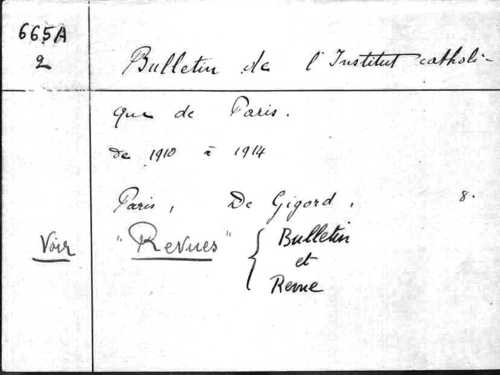 665A
2
Bulletin de l'Institut catholi-
que de Paris.
de 1910 à 1914
Paris, De Gigord, 8.
Voir "Revues" { Bulletin
et
Revue